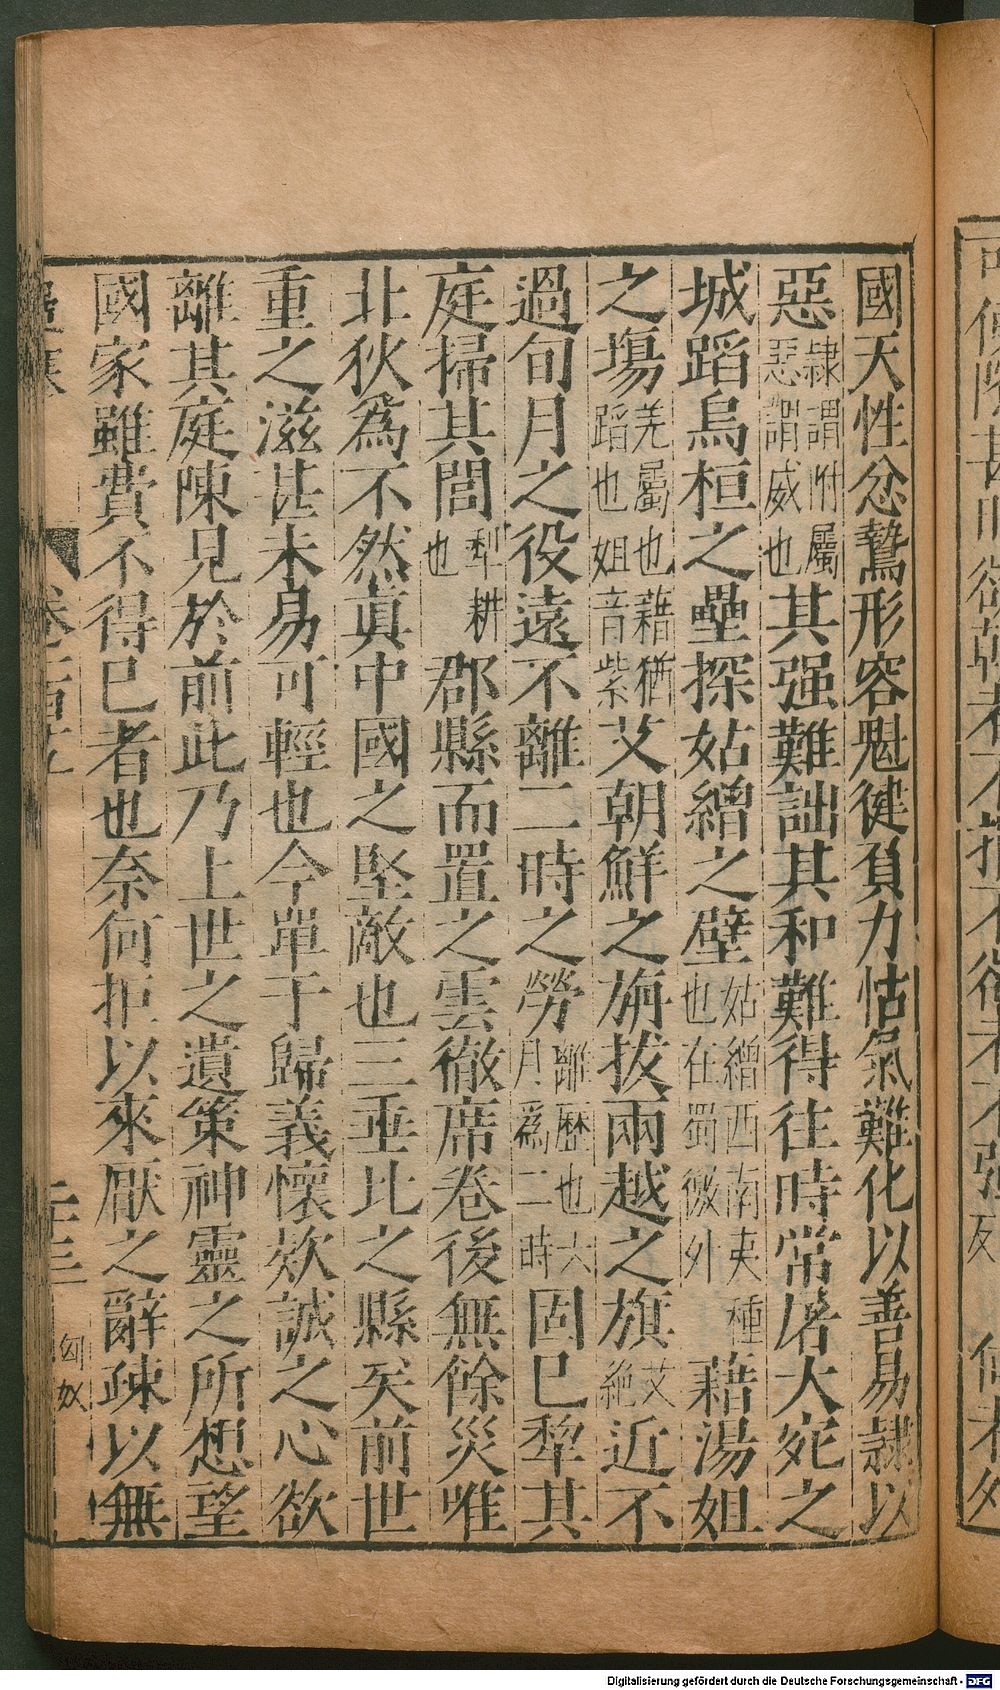 國天性忿鷙形容魁健負力怙氣難化以善易隷以
惡隷謂附屬惡謂威也其强難詘其和難得往時常屠大宛之
城蹈烏桓之壘探姑繒之壁姑繒西南夷種也在蜀徼外藉湯姐
之場羌屬也藉猶蹈也姐音紫艾朝鮮之旃拔兩越之旗艾絶近不
過旬月之役遠不離二時之勞離歷也六月爲二時固已犂其
庭掃其閭犁耕也郡縣而置之雲徹席卷後無餘災唯
北狄爲不然真中國之堅敵也三垂比之縣矣前世
重之滋甚未易可輕也今單于歸義懷欵誠之心欲
離其庭陳見於前此乃上世之遺策神靈之所想望
國家雖費不得已者也奈何拒以來厭之辭疎以無
二十三
匈奴
Digitalisierung gefördert durch die Deutsche Forschungsgemeinschaft - DFG